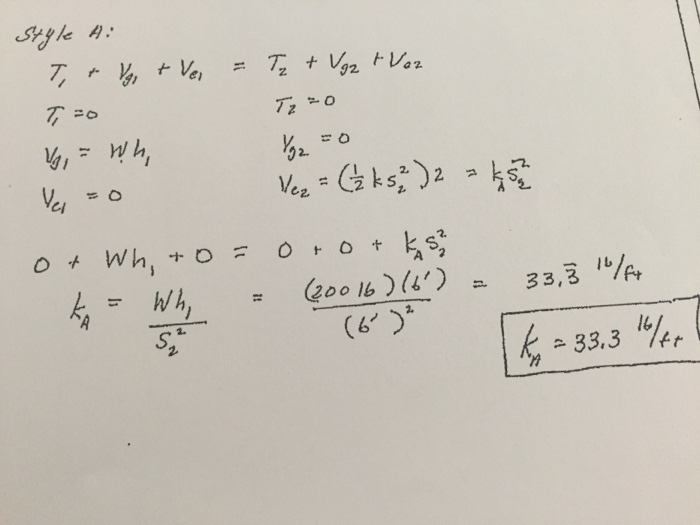 Style A:
T₁ + Vg₁ + Ve₁ = T₂ + Vg₂ + Ve₂
T₁ = 0 T₂ = 0
Vg₁ = Wh₁ Vg₂ = 0
Ve₁ = 0 Ve₂ = (½ k s₂²) 2 = k_A s₂²
0 + Wh₁ + 0 = 0 + 0 + k_A s₂²
k_A = Wh₁ / s₂² = (200 lb)(6') / (6')² = 33.3̅ lb/ft
k_A = 33.3 lb/ft